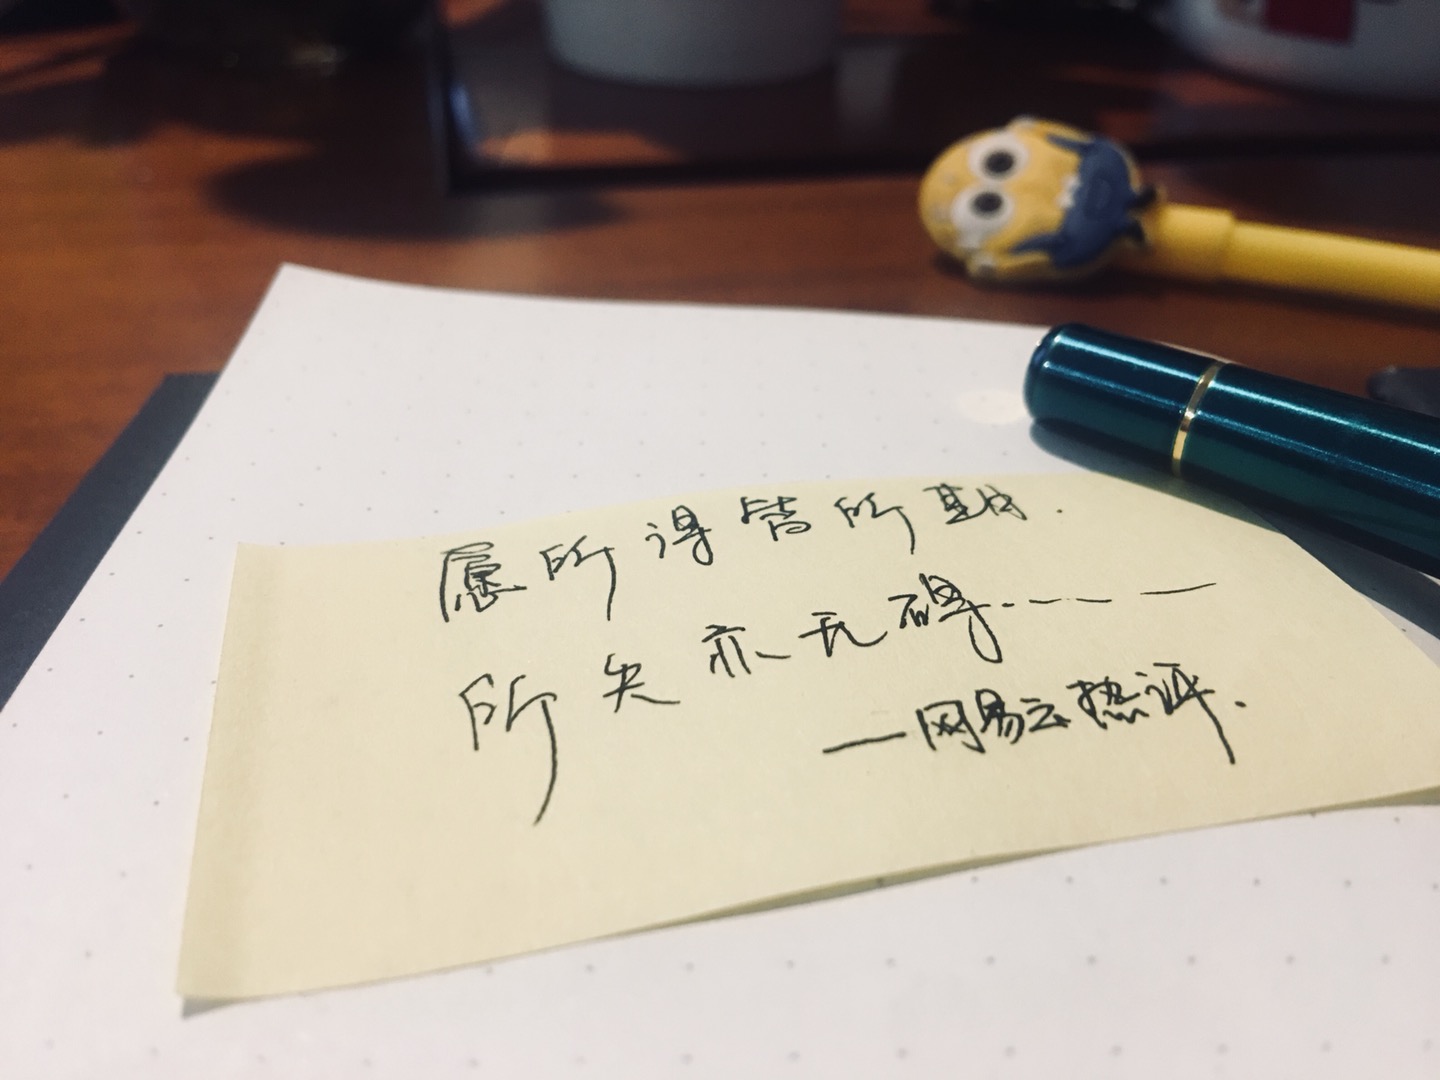 愿所得皆所期.
所失亦无碍……—
—网易云热评.